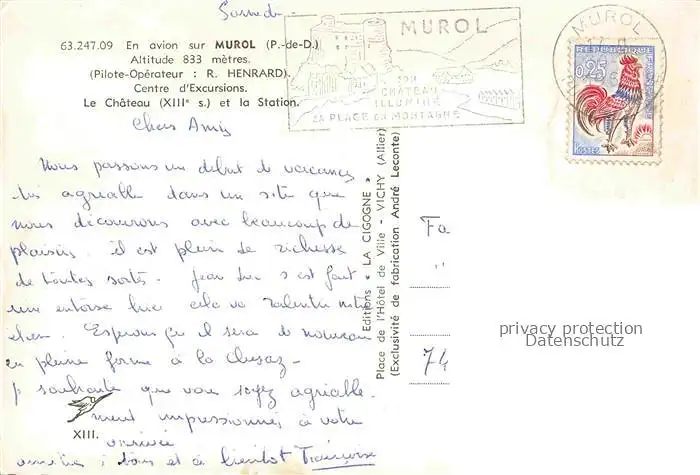 Samedi
63.247.09 En avion sur MUROL (P.-de-D.)
Altitude 833 mètres.
(Pilote-Opérateur : R. HENRARD).
Centre d'Excursions.
Le Château (XIIIe s.) et la Station.
MUROL
SON
CHÂTEAU
ILLUMINÉ
SA PLAGE EN MONTAGNE
MUROL
REPUBLIQUE FRANÇAISE
0,25
POSTES
Chers Amis
Nous passons un début de vacances
très agréable dans un site que
nous découvrons avec beaucoup de
plaisir. il est plein de richesses
de toutes sortes. Jean Luc s'est fait
une entorse hier cela va ralentir notre
élan. Espérons qu'il sera de nouveau
en pleine forme à la
Je souhaite que vous soyez agréable-
ment impressionnés à votre
arrivée
amitiés à tous et à bientôt Françoise
XIII.
Editions « LA CIGOGNE »
Place de l'Hôtel de Ville - VICHY (Allier)
(Exclusivité de fabrication André Leconte)
Fa
"
74
privacy protection
Datenschutz